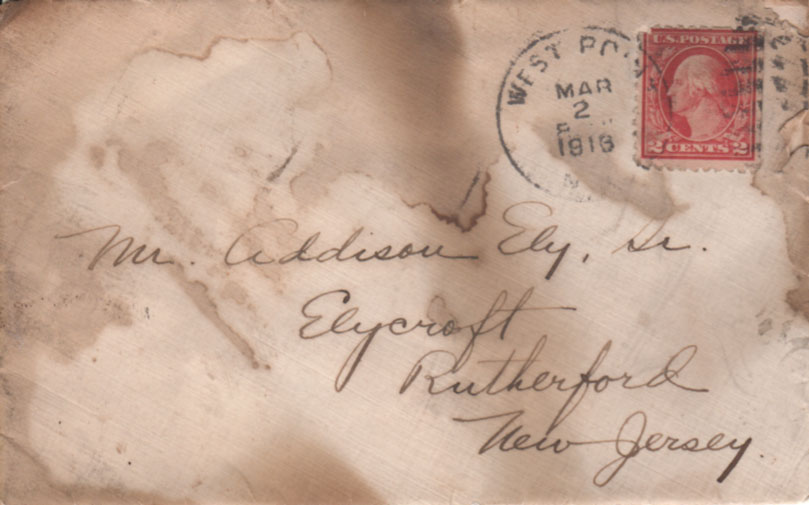 WEST PO
MAR
2
1918
U.S. POSTAGE
2 CENTS 2
Mr. Addison Ely, Sr.
Elycroft
Rutherford
New Jersey.